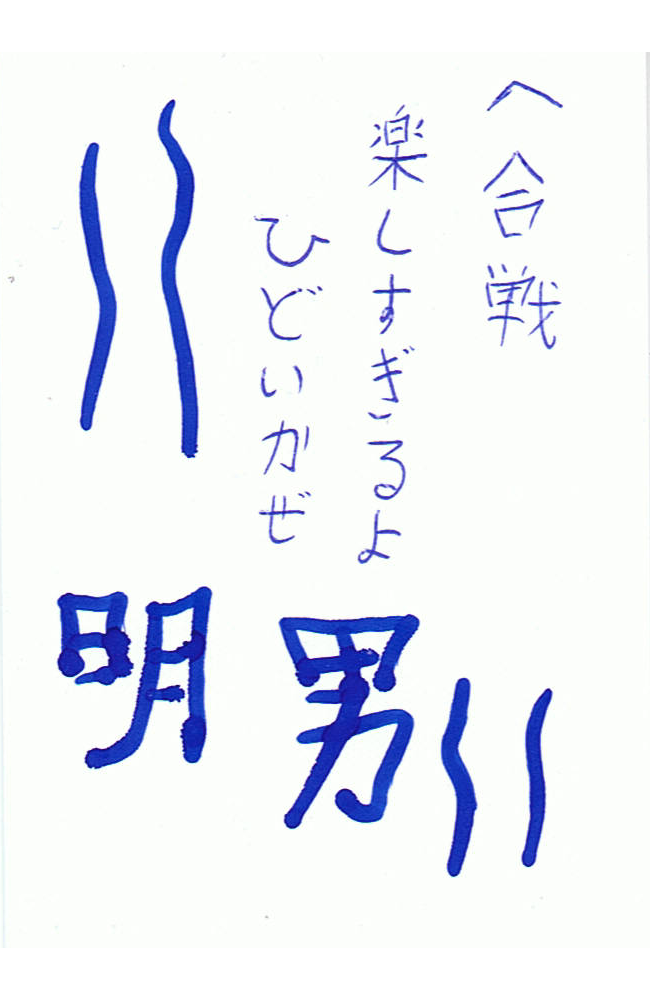 へ合戦
楽しすぎるよ
ひどいかぜ
男
明